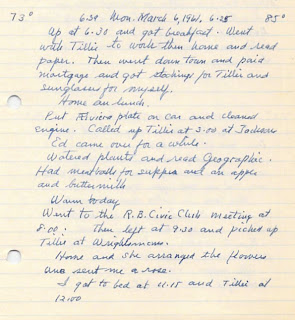 73° 6:30 Mon. March 6, 1961. 6:25 85°
Up at 6:30 and got breakfast. Went
with Tillie to work then home and read
paper. Then went down town and paid
mortgage and got stockings for Tillie and
sunglasses for myself.
Home an lunch.
Put Riviera plate on car and cleaned
engine. Called up Tillie at 3:00 at Jacksons
Ed came over for a while.
Watered plants and read Geographic.
Had meatballs for supper and an apple
and buttermilk
Warm today
Went to the R.B. Civic Club meeting at
8:00. Then left at 9:30 and picked up
Tillie at
Home and she arranged the flowers
sent me a rose.
I got to bed at 11:15 and Tillie at
12:00